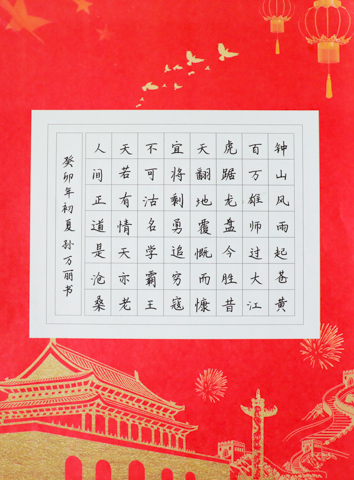 钟山风雨起苍黄
百万雄师过大江
虎踞龙盘今胜昔
天翻地覆慨而慷
宜将剩勇追穷寇
不可沽名学霸王
天若有情天亦老
人间正道是沧桑
癸卯年初夏孙万丽书